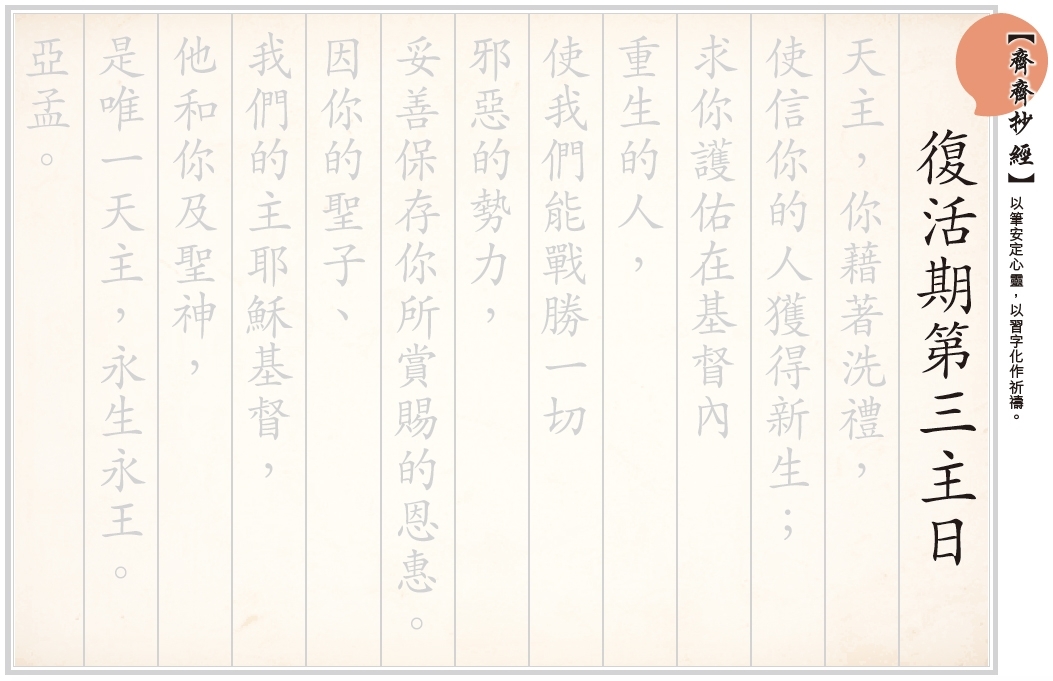 【齊齊抄經】以筆安定心靈，以習字化作祈禱。
復活期第三主日
天主，你藉著洗禮，
使信你的人獲得新生；
求你護佑在基督內
重生的人，
使我們能戰勝一切
邪惡的勢力，
妥善保存你所賞賜的恩惠。
因你的聖子、
我們的主耶穌基督，
他和你及聖神，
是唯一天主，永生永王。
亞孟。